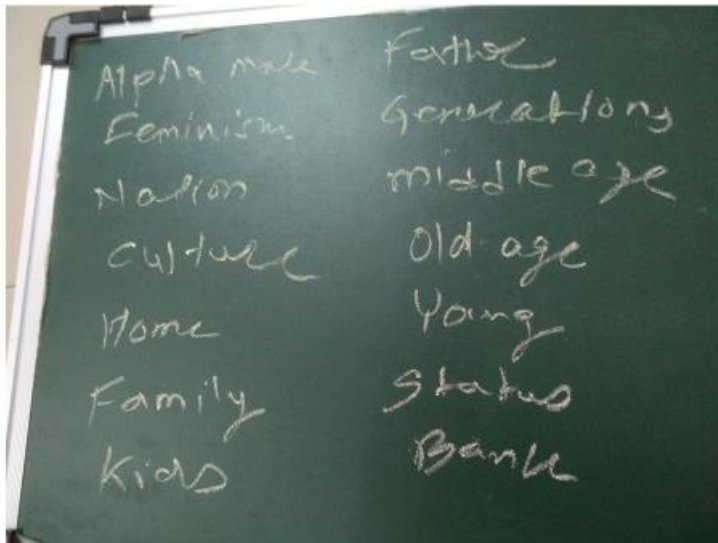 Alpha male
Feminism
Nation
Culture
Home
Family
Kids
Father
Generations
middle age
Old age
Young
Status
Bank